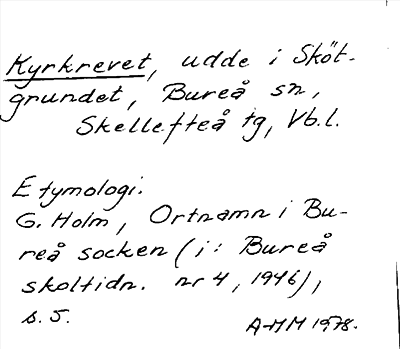 Kyrkrevet, udde i Sköt-
grundet, Bureå sn,
Skellefteå tg, Vb.l.
Etymologi.
G. Holm, Ortnamn i Bu-
reå socken (i: Bureå
skoltidn. nr 4, 1946),
s. 5.
A-MM 1978.